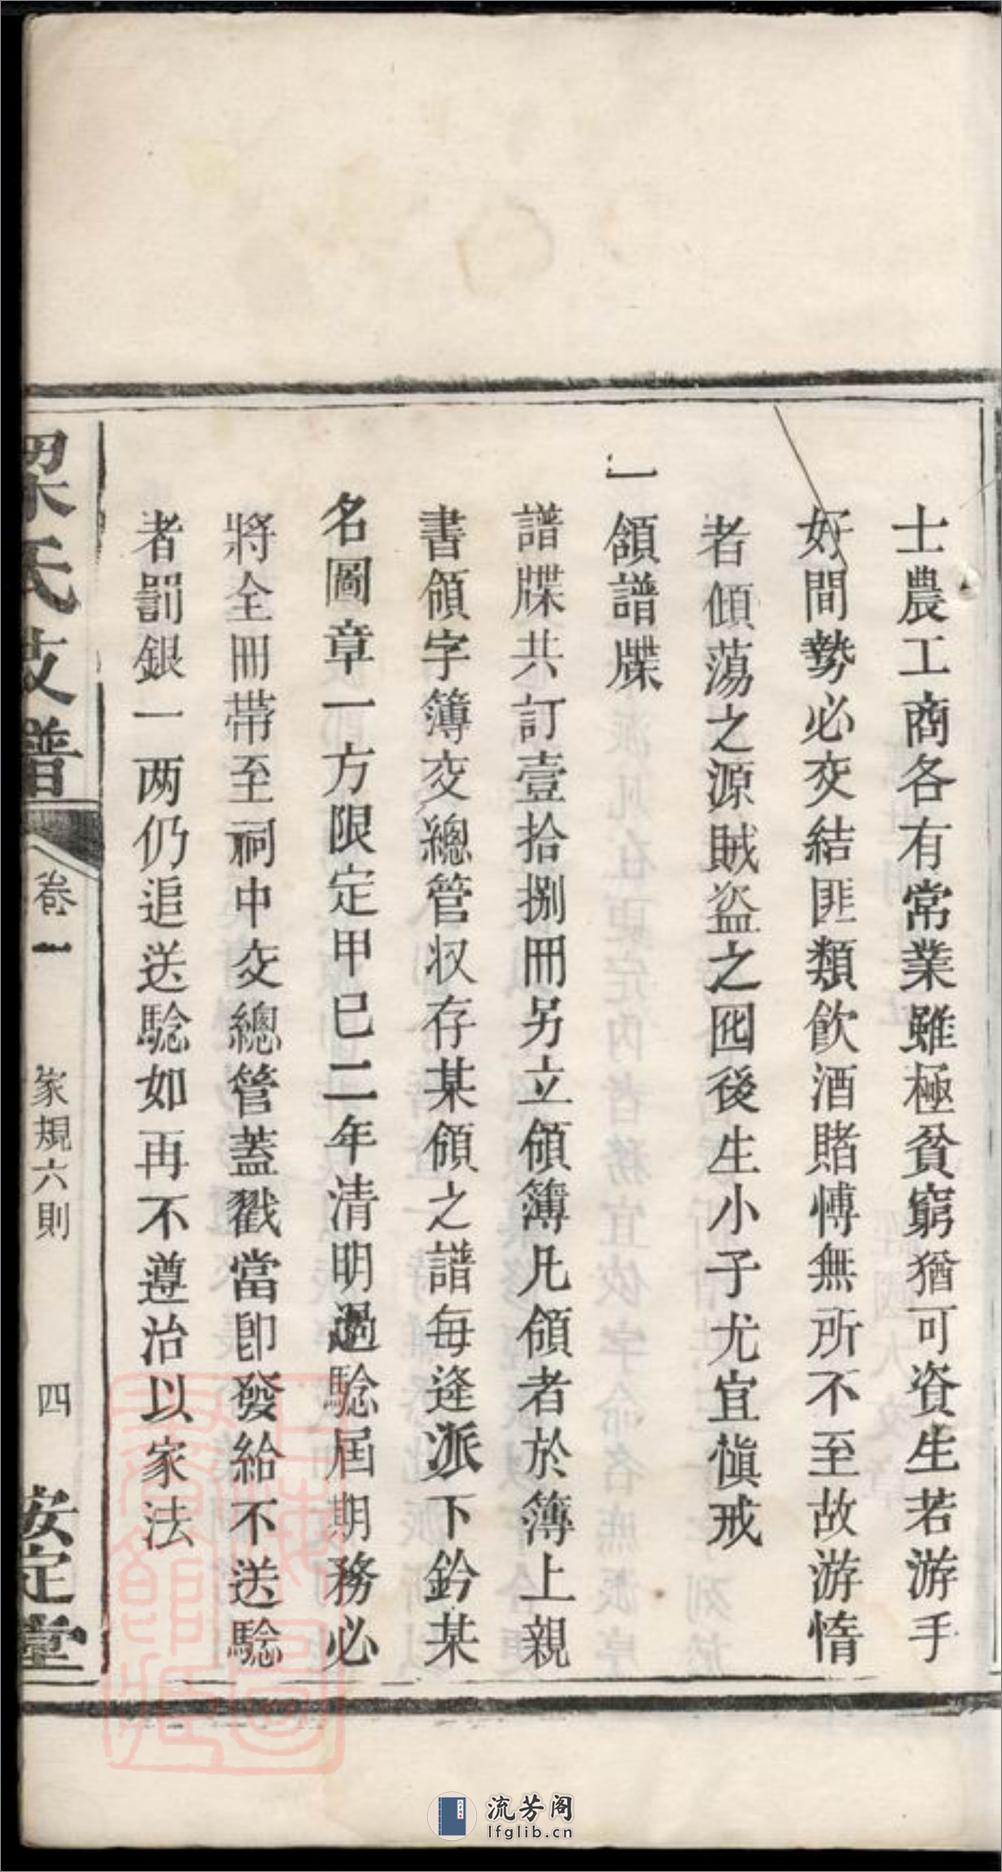 士農工商各有常業雖極貧窮猶可資生若游手
好間勢必交結匪類飲酒賭博無所不至故游惰
者傾蕩之源賊盜之囮後生小子尤宜慎戒
一領譜牒
譜牒共訂壹拾捌冊另立領簿凡領者於簿上親
書領字簿交總管収存某領之譜每逢派下鈐某
名圖章一方限定甲巳二年清明過騐屆期務必
將全冊帶至祠中交總管蓋戳當卽發給不送騐
者罰銀一两仍追送騐如再不遵治以家法
梁氏支譜
卷一
家規六則
四
安定堂
流芳阁
lfglib.cn